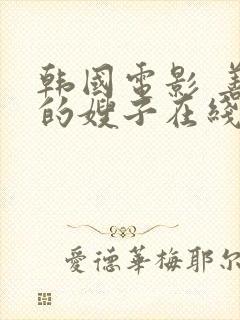 韩國電影 善
的嫂子在綫
愛德華梅耶尔